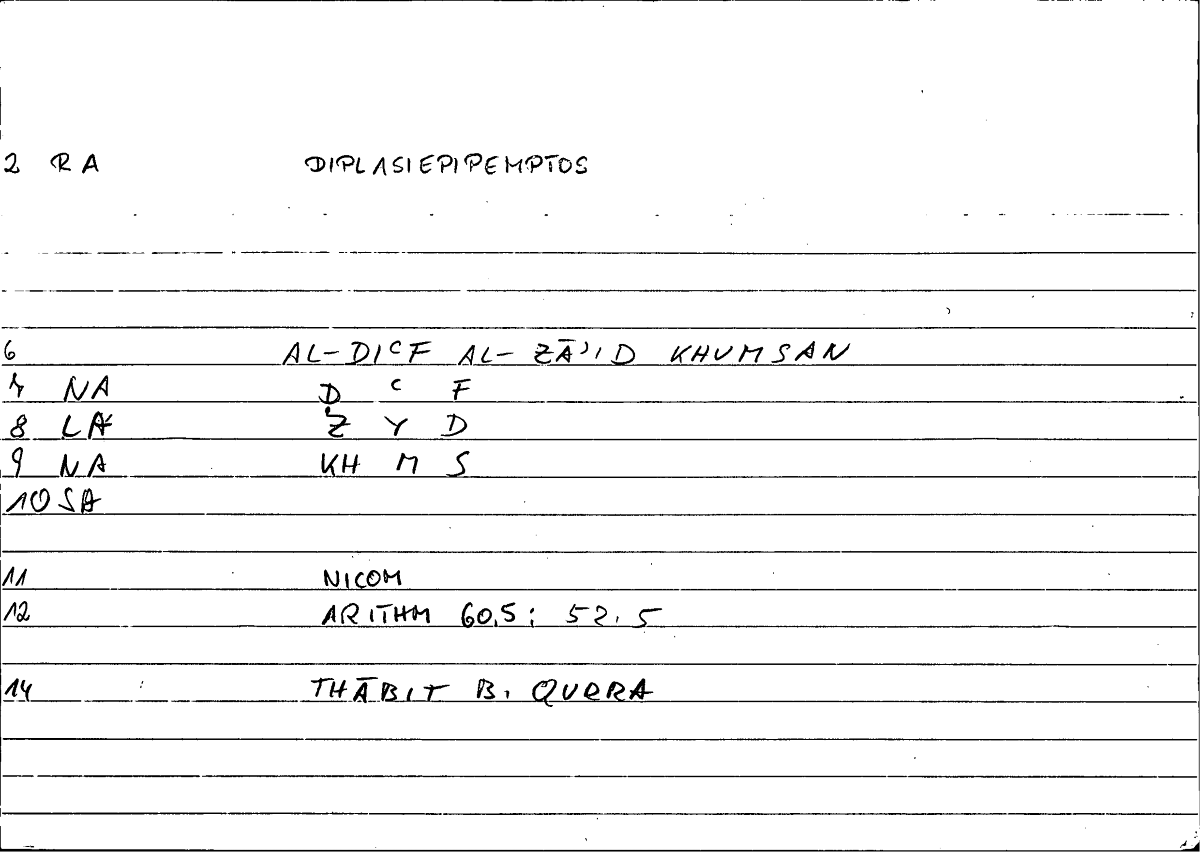 2 RA DIPLASIEPIPEMPTOS
6 AL-DIᶜF AL-ZĀʾID KHUMSAN
7 NA D ᶜ F
8 LA Z Y D
9 NA KH M S
10 SA
11 NICOM
12 ARITHM 60.5; 52.5
14 THĀBIT B. QURRA